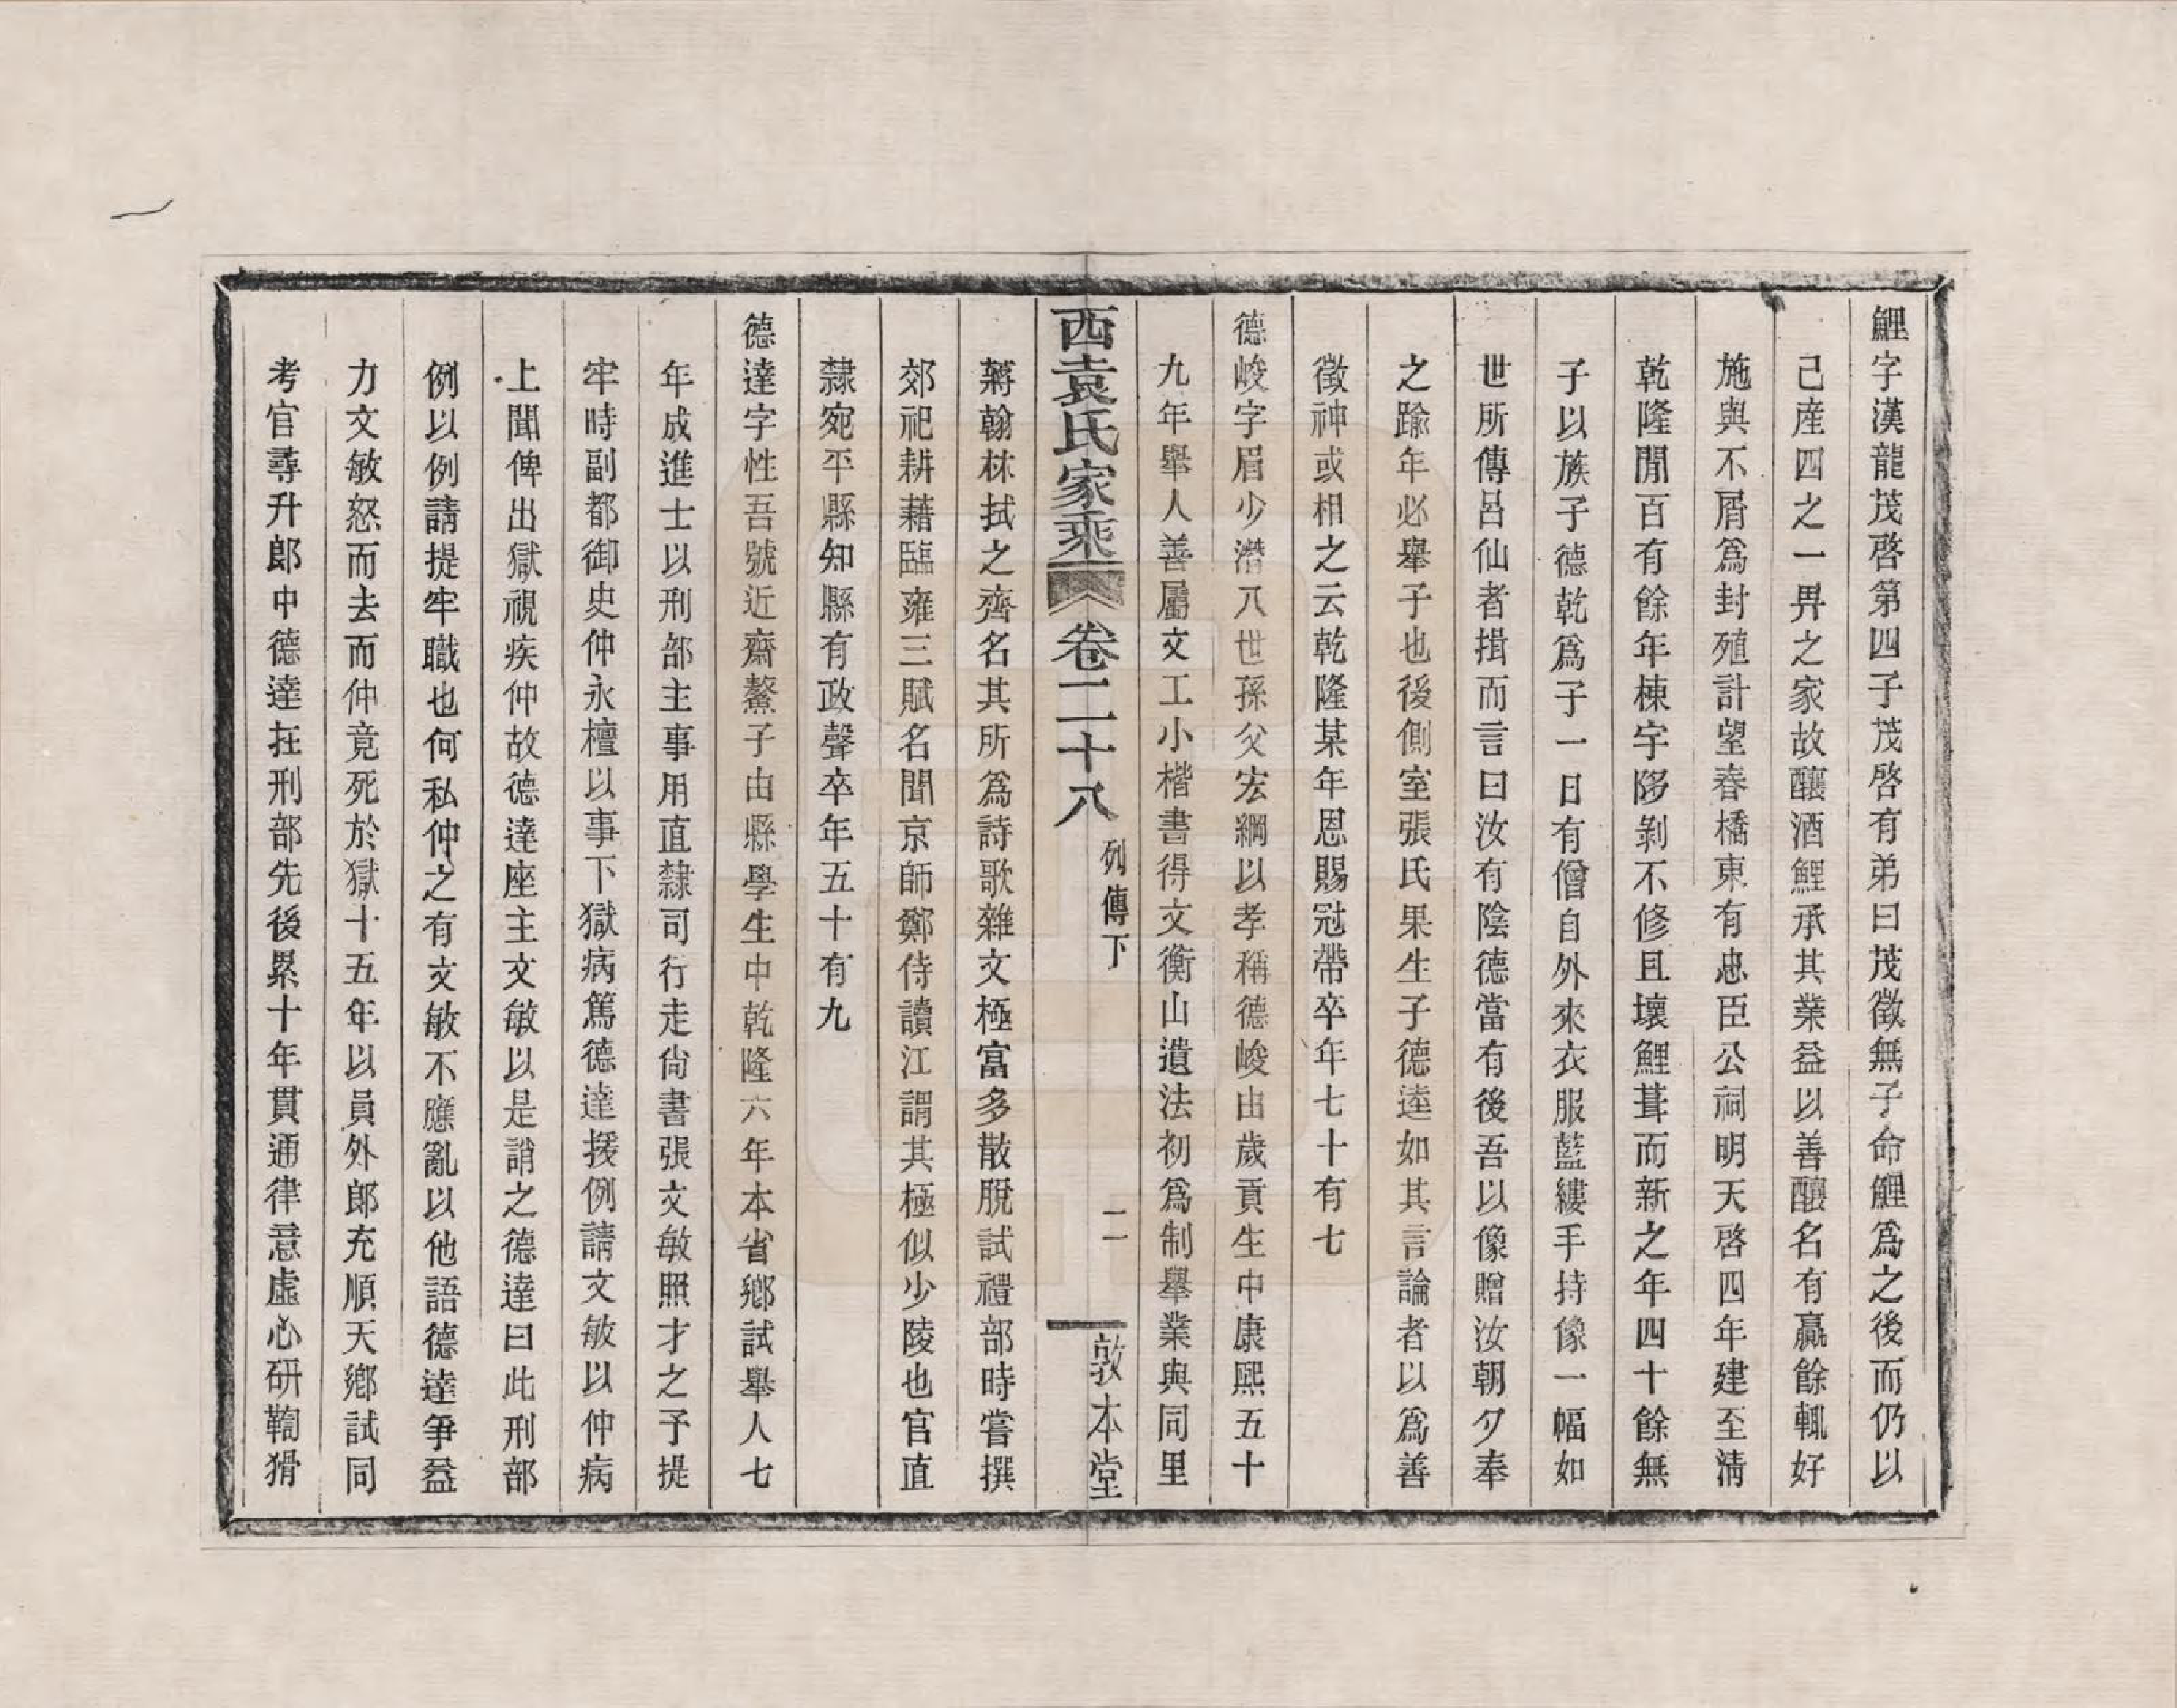 鯉字漢龍茂啓第四子茂啓有弟曰茂徵無子命鯉爲之後而仍以
己産四之一畀之家故釀酒鯉承其業益以善釀名有贏餘輒好
施與不屑爲封殖計望春橋東有忠臣公祠明天啓四年建至淸
乾隆閒百有餘年棟宇陊剝不修且壞鯉葺而新之年四十餘無
子以族子德乾爲子一日有僧自外來衣服藍縷手持像一幅如
世所傳呂仙者揖而言曰汝有陰德當有後吾以像贈汝朝夕奉
之踰年必舉子也後側室張氏果生子德逵如其言論者以爲善
徵神或相之云乾隆某年恩賜冠帶卒年七十有七
德峻字眉少潛八世孫父宏綱以孝稱德峻由歲貢生中康熙五十
九年舉人善屬文工小楷書得文衡山遺法初爲制舉業與同里
蔣翰林拭之齊名其所爲詩歌雜文極富多散脫試禮部時嘗撰
郊祀耕藉臨雍三賦名聞京師鄭侍讀江謂其極似少陵也官直
隸宛平縣知縣有政聲卒年五十有九
德達字性吾號近齋鰲子由縣學生中乾隆六年本省鄉試舉人七
年成進士以刑部主事用直隸司行走尙書張文敏照才之予提
牢時副都御史仲永檀以事下獄病篤德達援例請文敏以仲病
上聞俾出獄視疾仲故德達座主文敏以是誚之德達曰此刑部
例以例請提牢職也何私仲之有文敏不應亂以他語德達爭益
力文敏怒而去而仲竟死於獄十五年以員外郞充順天鄉試同
考官尋升郞中德達在刑部先後累十年貫通律意虛心研鞫猾
西袁氏家乘 卷二十八 列傳下 二 敦本堂